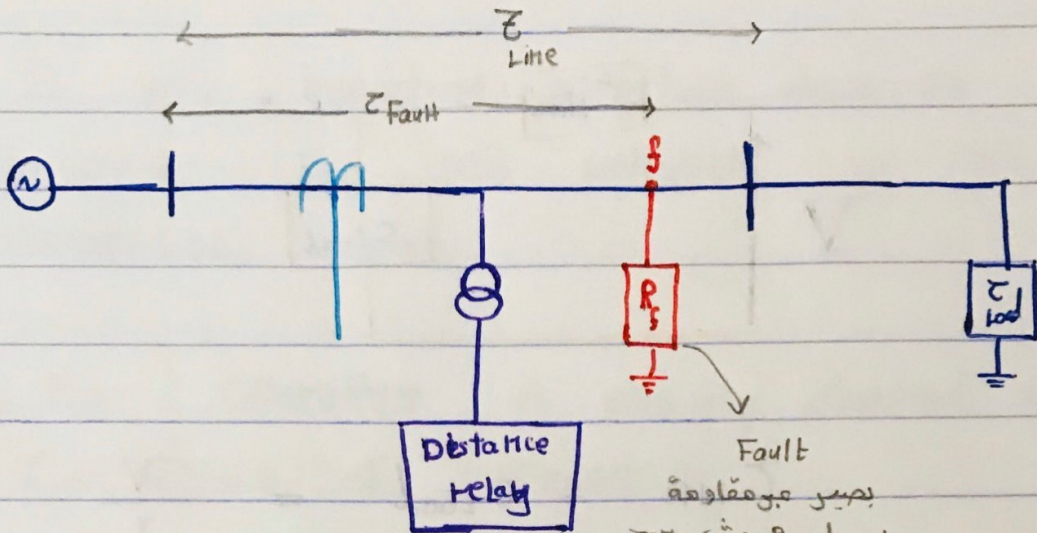 Z
Line
Z Fault
~
f
Rf
Z
Load
Distance
relay
Fault
بصير عبر مقاومة